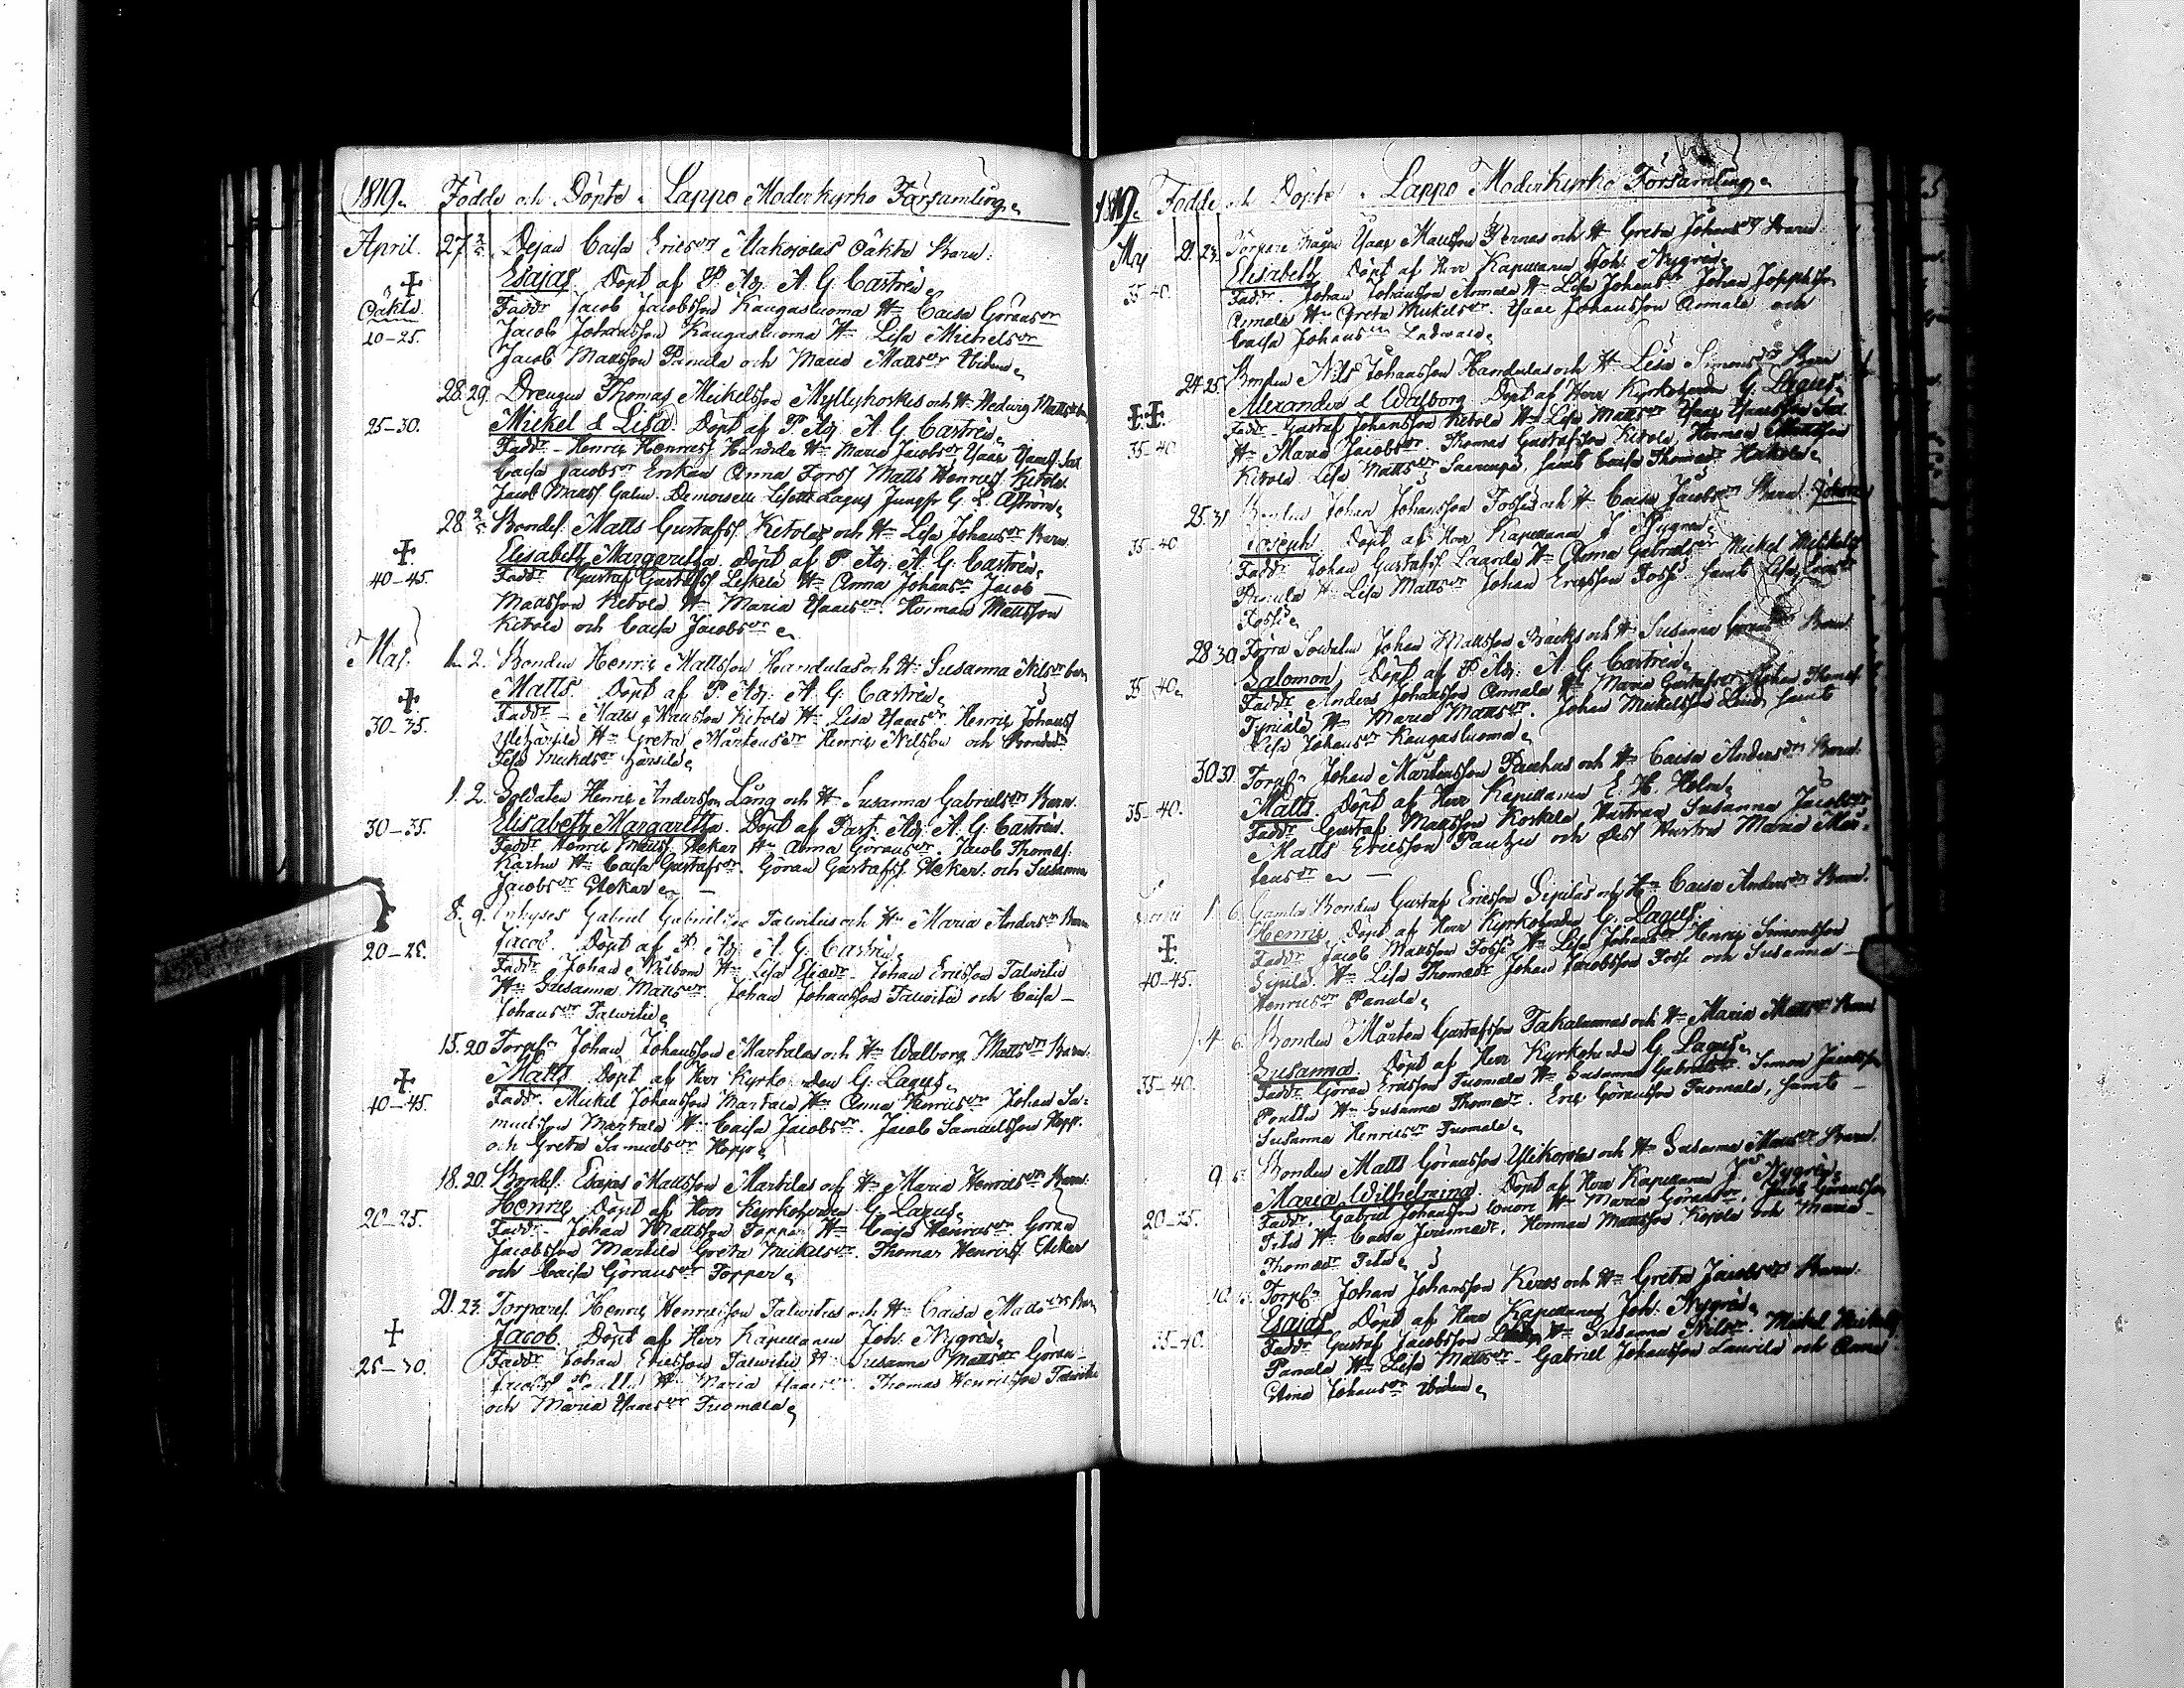 1819. Födde och Döpte i Lappo Moderkyrko Församling.
April. 27. 2/5. Dejan Caisa Ericsdr Makojolas Oäkta Barn.
Esajas. Döpt af P. Adj. A. G. Castrén.
Oäkta. Faddr Jacob Jacobsson Kangasluoma Hu Caisa Göransdr
20-25. Jacob Johansson Kangasluoma Hu Lisa Michelsdr
Jacob Mattsson Panula och Maria Mattsdr Ibidem.
28. 29. Drengen Thomas Mickelsson Myllykoskis och Hu Hedvig Mattsdr
25-30. Mickel & Lisa. Döpt af P. Adj. A. G. Castrén.
Faddr - Henric Henricss. Handula Hu Maria Jacobsdr
Caisa Jacobsdr Enkan Anna Forss Matts Henricss. Ketola
Jacob Matss. Demoiselle Lisette Lagus Jungfr G. Aström.
28. 2/5 Bondes. Matts Gustafss. Ketolas och Hu Lisa Johansdr Barn.
Elisabeth Margaretha. Döpt af P. Adj. A. G. Castrén.
40-45. Faddr Gustaf Gustafss. Hu Anna Johansdr Jacob
Mattsson Ketola Hu Maria Isaacsdr. Herman Mattsson
Ketola och Caisa Jacobsdr
Maj. 1. 2. Bonden Henric Mattsson Handulas och Hu Susanna Nilsdr Barn
Matts. Döpt af P. Adj. A. G. Castrén.
30-35. Faddr - Matts Mattsson Ketola Hu Lisa Isaacsdr. Henric Johanss
Hu Greta Mårtensdr Henric Nilsson och
Lisa Mickelsdr
1. 2. Soldaten Henric Andersson Lång och Hu Susanna Gabrielsdr Barn.
30-35. Elisabeth Margaretha. Döpt af Past. Adj. A. G. Castrén.
Faddr Henric Hu Anna Göransdr. Jacob Thomæs.
Hu Caisa Gustafsdr. Göran Gustafss. och Susanna
Jacobsdr
8. 9. Inhyses Gabriel Talwitie och Hu Maria Andersdr Barn
20-25. Jacob. Döpt af P. Adj. A. G. Castrén.
Faddr Johan Hu Lisa Eliædr. Johan Ericsson Talwitie
Hu Susanna Mattsdr. Johan Johansson Talwitie och Caisa
Johansdr Talwitie.
15. 20 Torpn Johan Johansson Martalas och Hu Walborg Mattsdr Barn.
Matts. Döpt af Herr Kyrkoherden G. Lagus.
40-45. Faddr. Mickel Johansson Martala Hu Anna Henricsdr Johan Sa-
muelsson Martala Hu Caisa Jacobsdr. Jacob Samuelsson
och Greta Samuelsdr
18. 20. Bondes. Esajas Mattsson Martilas och Hu Maria Henricsdr Barn.
20-25. Henric. Döpt af Herr Kyrkoherden G. Lagus.
Faddr - Johan Mattsson Topper Hu Caisa Henricsdr Göran
Jacobsson Martila Greta Mickelsdr. Thomas Henricss.
och Caisa Göransdr Topper.
21. 23. Torpares. Henric Henricsson Talwitie och Hu Caisa Mattsdr Barn
Jacob. Döpt af Herr Kapellanen Joh. Nygrén.
25-30. Faddr Johan Ericsson Talwitie Hu Susanna Mattsdr Göran
Hu Maria Isaacsdr. Thomas Henricsson Talwitie
och Maria Isaacsdr Tuomala.
1819. Födde och Döpte i Lappo Moderkyrko Församling.
Maj 21. 23. Torpare Isaac Mattsson Pernas och Hu Greta Johansdr Barn.
35-40. Elisabeth. Döpt af Herr Kapellanen Joh. Nygrén.
Faddr. Johan Johansson Annala Hu Lisa Johansdr Johan Josephsson
Annala Hu Greta Mickelsdr. Isaac Johansson Annala och
Caisa Johansdr
24. 25. Bonden Nils Johansson Handulas och Hu Lisa Simonsdr Barn
Alexander & Walborg. Döpt af Herr Kyrkoherden G. Lagus.
35-40. Faddr - Gustaf Johansson Ketola Hu Lisa Mattsdr Isaac Isaacsson
Hu Maria Jacobsdr. Thomas Gustafsson Ketola, Herman Mattsson
Ketola Lisa Mattsdr samt Caisa Thomædr
25. 31 Bonden Johan Johansson Fossis och Hu Caisa Jacobsdr Barn.
35-40 Joseph. Döpt af Herr Kapellanen J. Nygrén.
Faddr Johan Gustafss. Laurila Hu Anna Gabrielsdr Mickel Mickelss.
Panula Hu Lisa Mattsdr Johan Ericsson Fossi samt Lisa
Fossi.
28. 30 Förra Soldaten Johan Mattsson Bäcks och Hu Susanna Barn.
35-40. Salomon. Döpt af P. Adj. A. G. Castrén.
Faddr Anders Johansson Annala Hu Maria Gustafsdr Johan Thomæs.
Hu Maria Mattsdr. Johan Mickelsson Lund samt
Lisa Johansdr Kangasluoma.
30. 31. Torpn Johan Mårtensson Pauhus och Hu Caisa Andersdr Barn.
35-40. Matts. Döpt af Herr Kapellanen E. H. Holm.
Faddr Gustaf Mattsson Koskela Hustrun Susanna Jacobsdr
Matts Ericsson och dess Hustru Maria
tensdr
1. 6. Gamla Bonden Gustaf Ericsson Sipilas och Hu Caisa Andersdr Barn.
Henric. Döpt af Herr Kyrkoherden G. Lagus.
40-45. Faddr Jacob Mattsson Fossi Hu Lisa Johansdr Henric Simonsson
Sipila Hu Lisa Thomædr Johan Jacobsson Fossi och Susanna
Henricsdr Panula.
4. 6. Bonden Mårten Gustafsson Takaluomas och Hu Maria Mattsdr Barn
Susanna. Döpt af Herr Kyrkoherden G. Lagus.
35-40. Faddr Göran Ericsson Tuomala Hu Susanna Gabrielsdr. Simon Jacobsson
Hu Susanna Thomædr. Eric Göransson Tuomala, samt
Susanna Henricsdr Tuomala.
9. Bonden Matts Göransson Ylikojolas och Hu Susanna Mattsdr Barn.
Maria Wilhelmina. Döpt af Herr Kapellanen J. Nygrén.
20-25. Faddr. Gabriel Johansson Hu Maria Göransdr. Jacob Göransson
Hu Caisa Jeremædr. Herman Mattsson Kojola och Maria
Thomædr
10. Torpn Johan Johansson Keros och Hu Greta Jacobsdr Barn.
Esajas. Döpt af Herr Kapellanen Joh. Nygrén.
35-40. Faddr Gustaf Jacobsson Hu Susanna Nilsdr Mickel Mickelss.
Panula Hu Lisa Mattsdr - Gabriel Johansson Laurila och Anna
Johansdr Ibidem.